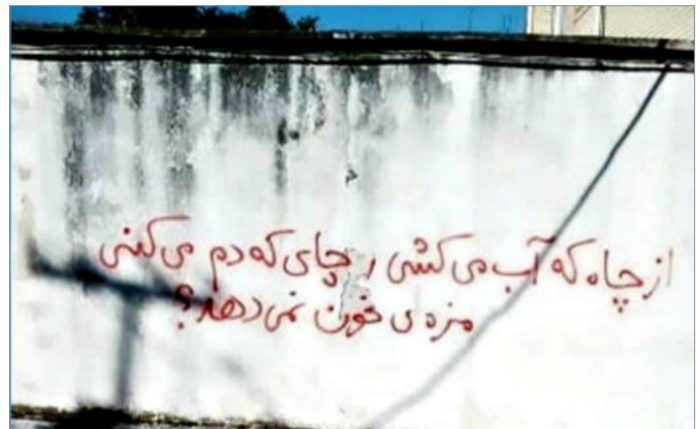 از چاه که آب می کشی، چای که دم می کنی
مزه ی خون نمی دهد؟